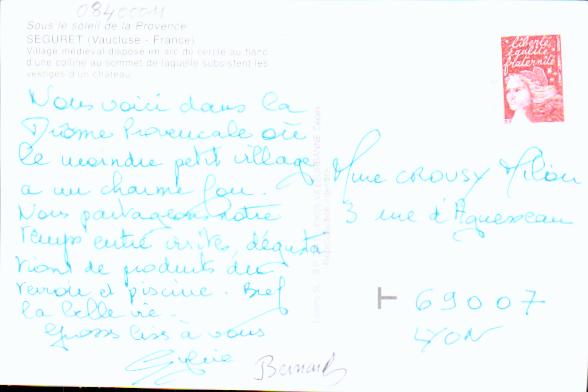 08400011
Sous le soleil de la Provence
SEGURET (Vaucluse - France)
Village médiéval disposé en arc de cercle au flanc
d'une colline au sommet de laquelle subsistent les
vestiges d'un château.
Liberté
égalité
fraternité
Nous voici dans la
Drôme Provençale où
le moindre petit village
a un charme fou.
Nous partageons notre
temps entre visites, dégusta
tions de produits du
terroir et piscine. Bref
la belle vie.
Grosses bises à vous
Sylvie
Bernard
Mme CROUSY
3 rue d'Aguesseau
69007
LYON